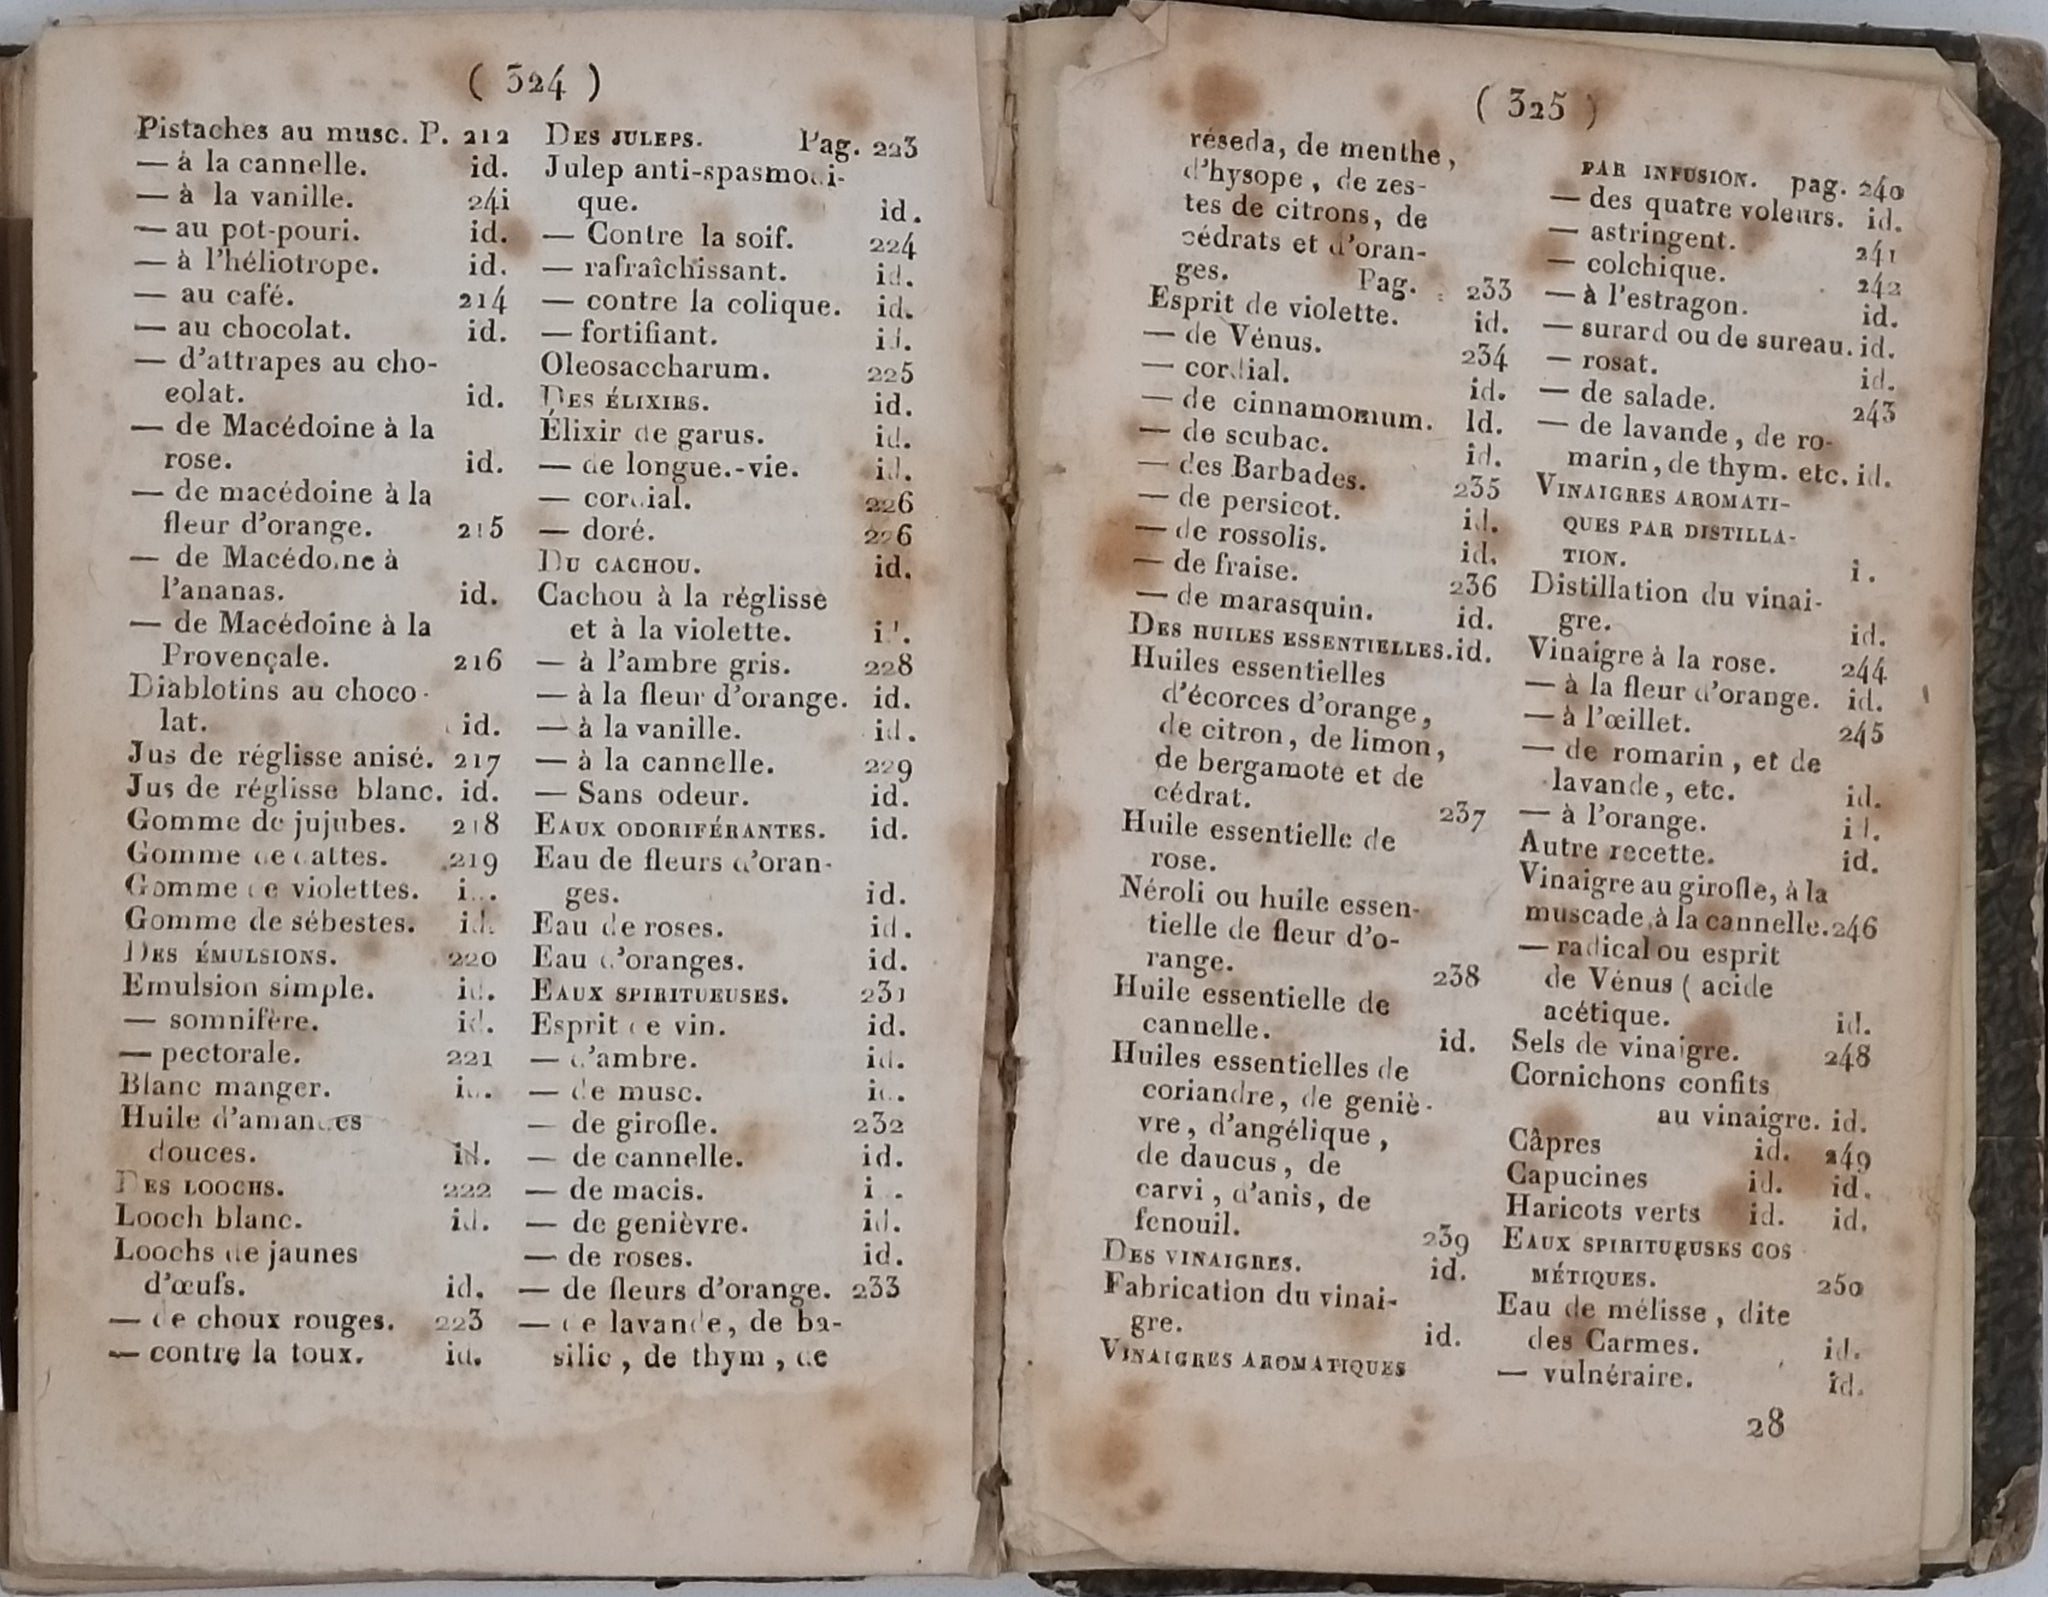 ( 324 )
Pistaches au musc. P. 212
— à la cannelle. id.
— à la vanille. 241
— au pot-pouri. id.
— à l'héliotrope. id.
— au café. 214
— au chocolat. id.
— d'attrapes au cho-
eolat. id.
— de Macédoine à la
rose. id.
— de macédoine à la
fleur d'orange. 215
— de Macédoine à
l'ananas. id.
— de Macédoine à la
Provençale. 216
Diablotins au choco-
lat. id.
Jus de réglisse anisé. 217
Jus de réglisse blanc. id.
Gomme de jujubes. 218
Gomme de dattes. 219
Gomme de violettes. id.
Gomme de sébestes. id.
DES ÉMULSIONS. 220
Emulsion simple. id.
— somnifère. id.
— pectorale. 221
Blanc manger. id.
Huile d'amandes
douces. id.
DES LOOCHS. 222
Looch blanc. id.
Loochs de jaunes
d'œufs. id.
— de choux rouges. 223
— contre la toux. id.
DES JULEPS. Pag. 223
Julep anti-spasmodi-
que. id.
— Contre la soif. 224
— rafraîchissant. id.
— contre la colique. id.
— fortifiant. id.
Oleosaccharum. 225
DES ÉLIXIRS. id.
Élixir de garus. id.
— de longue.-vie. id.
— cordial. 226
— doré. 226
DU CACHOU. id.
Cachou à la réglisse
et à la violette. id.
— à l'ambre gris. 228
— à la fleur d'orange. id.
— à la vanille. id.
— à la cannelle. 229
— Sans odeur. id.
EAUX ODORIFÉRANTES. id.
Eau de fleurs d'oran-
ges. id.
Eau de roses. id.
Eau d'oranges. id.
EAUX SPIRITUEUSES. 231
Esprit de vin. id.
— d'ambre. id.
— de musc. id.
— de girofle. 232
— de cannelle. id.
— de macis. id.
— de genièvre. id.
— de roses. id.
— de fleurs d'orange. 233
— de lavande, de ba-
silic, de thym, de
( 325 )
réseda, de menthe,
d'hysope, de zes-
tes de citrons, de
cédrats et d'oran-
ges. Pag. 233
Esprit de violette. id.
— de Vénus. 234
— cordial. id.
— de cinnamomum. Id.
— de scubac. id.
— des Barbades. 235
— de persicot. id.
— de rossolis. id.
— de fraise. 236
— de marasquin. id.
DES HUILES ESSENTIELLES. id.
Huiles essentielles
d'écorces d'orange,
de citron, de limon,
de bergamote et de
cédrat. 237
Huile essentielle de
rose.
Néroli ou huile essen-
tielle de fleur d'o-
range. 238
Huile essentielle de
cannelle. id.
Huiles essentielles de
coriandre, de geniè-
vre, d'angélique,
de daucus, de
carvi, d'anis, de
fenouil. 239
DES VINAIGRES. id.
Fabrication du vinai-
gre. id.
VINAIGRES AROMATIQUES
PAR INFUSION. pag. 240
— des quatre voleurs. id.
— astringent. 241
— colchique. 242
— à l'estragon. id.
— surard ou de sureau. id.
— rosat. id.
— de salade. 243
— de lavande, de ro-
marin, de thym. etc. id.
VINAIGRES AROMATI-
QUES PAR DISTILLA-
TION. i.
Distillation du vinai-
gre. id.
Vinaigre à la rose. 244
— à la fleur d'orange. id.
— à l'œillet. 245
— de romarin, et de
lavande, etc. id.
— à l'orange. id.
Autre recette. id.
Vinaigre au girofle, à la
muscade, à la cannelle. 246
— radical ou esprit
de Vénus ( acide
acétique. id.
Sels de vinaigre. 248
Cornichons confits
au vinaigre. id.
Câpres id. 249
Capucines id. id.
Haricots verts id. id.
EAUX SPIRITUEUSES COS
MÉTIQUES. 250
Eau de mélisse, dite
des Carmes. id.
— vulnéraire. id.
28